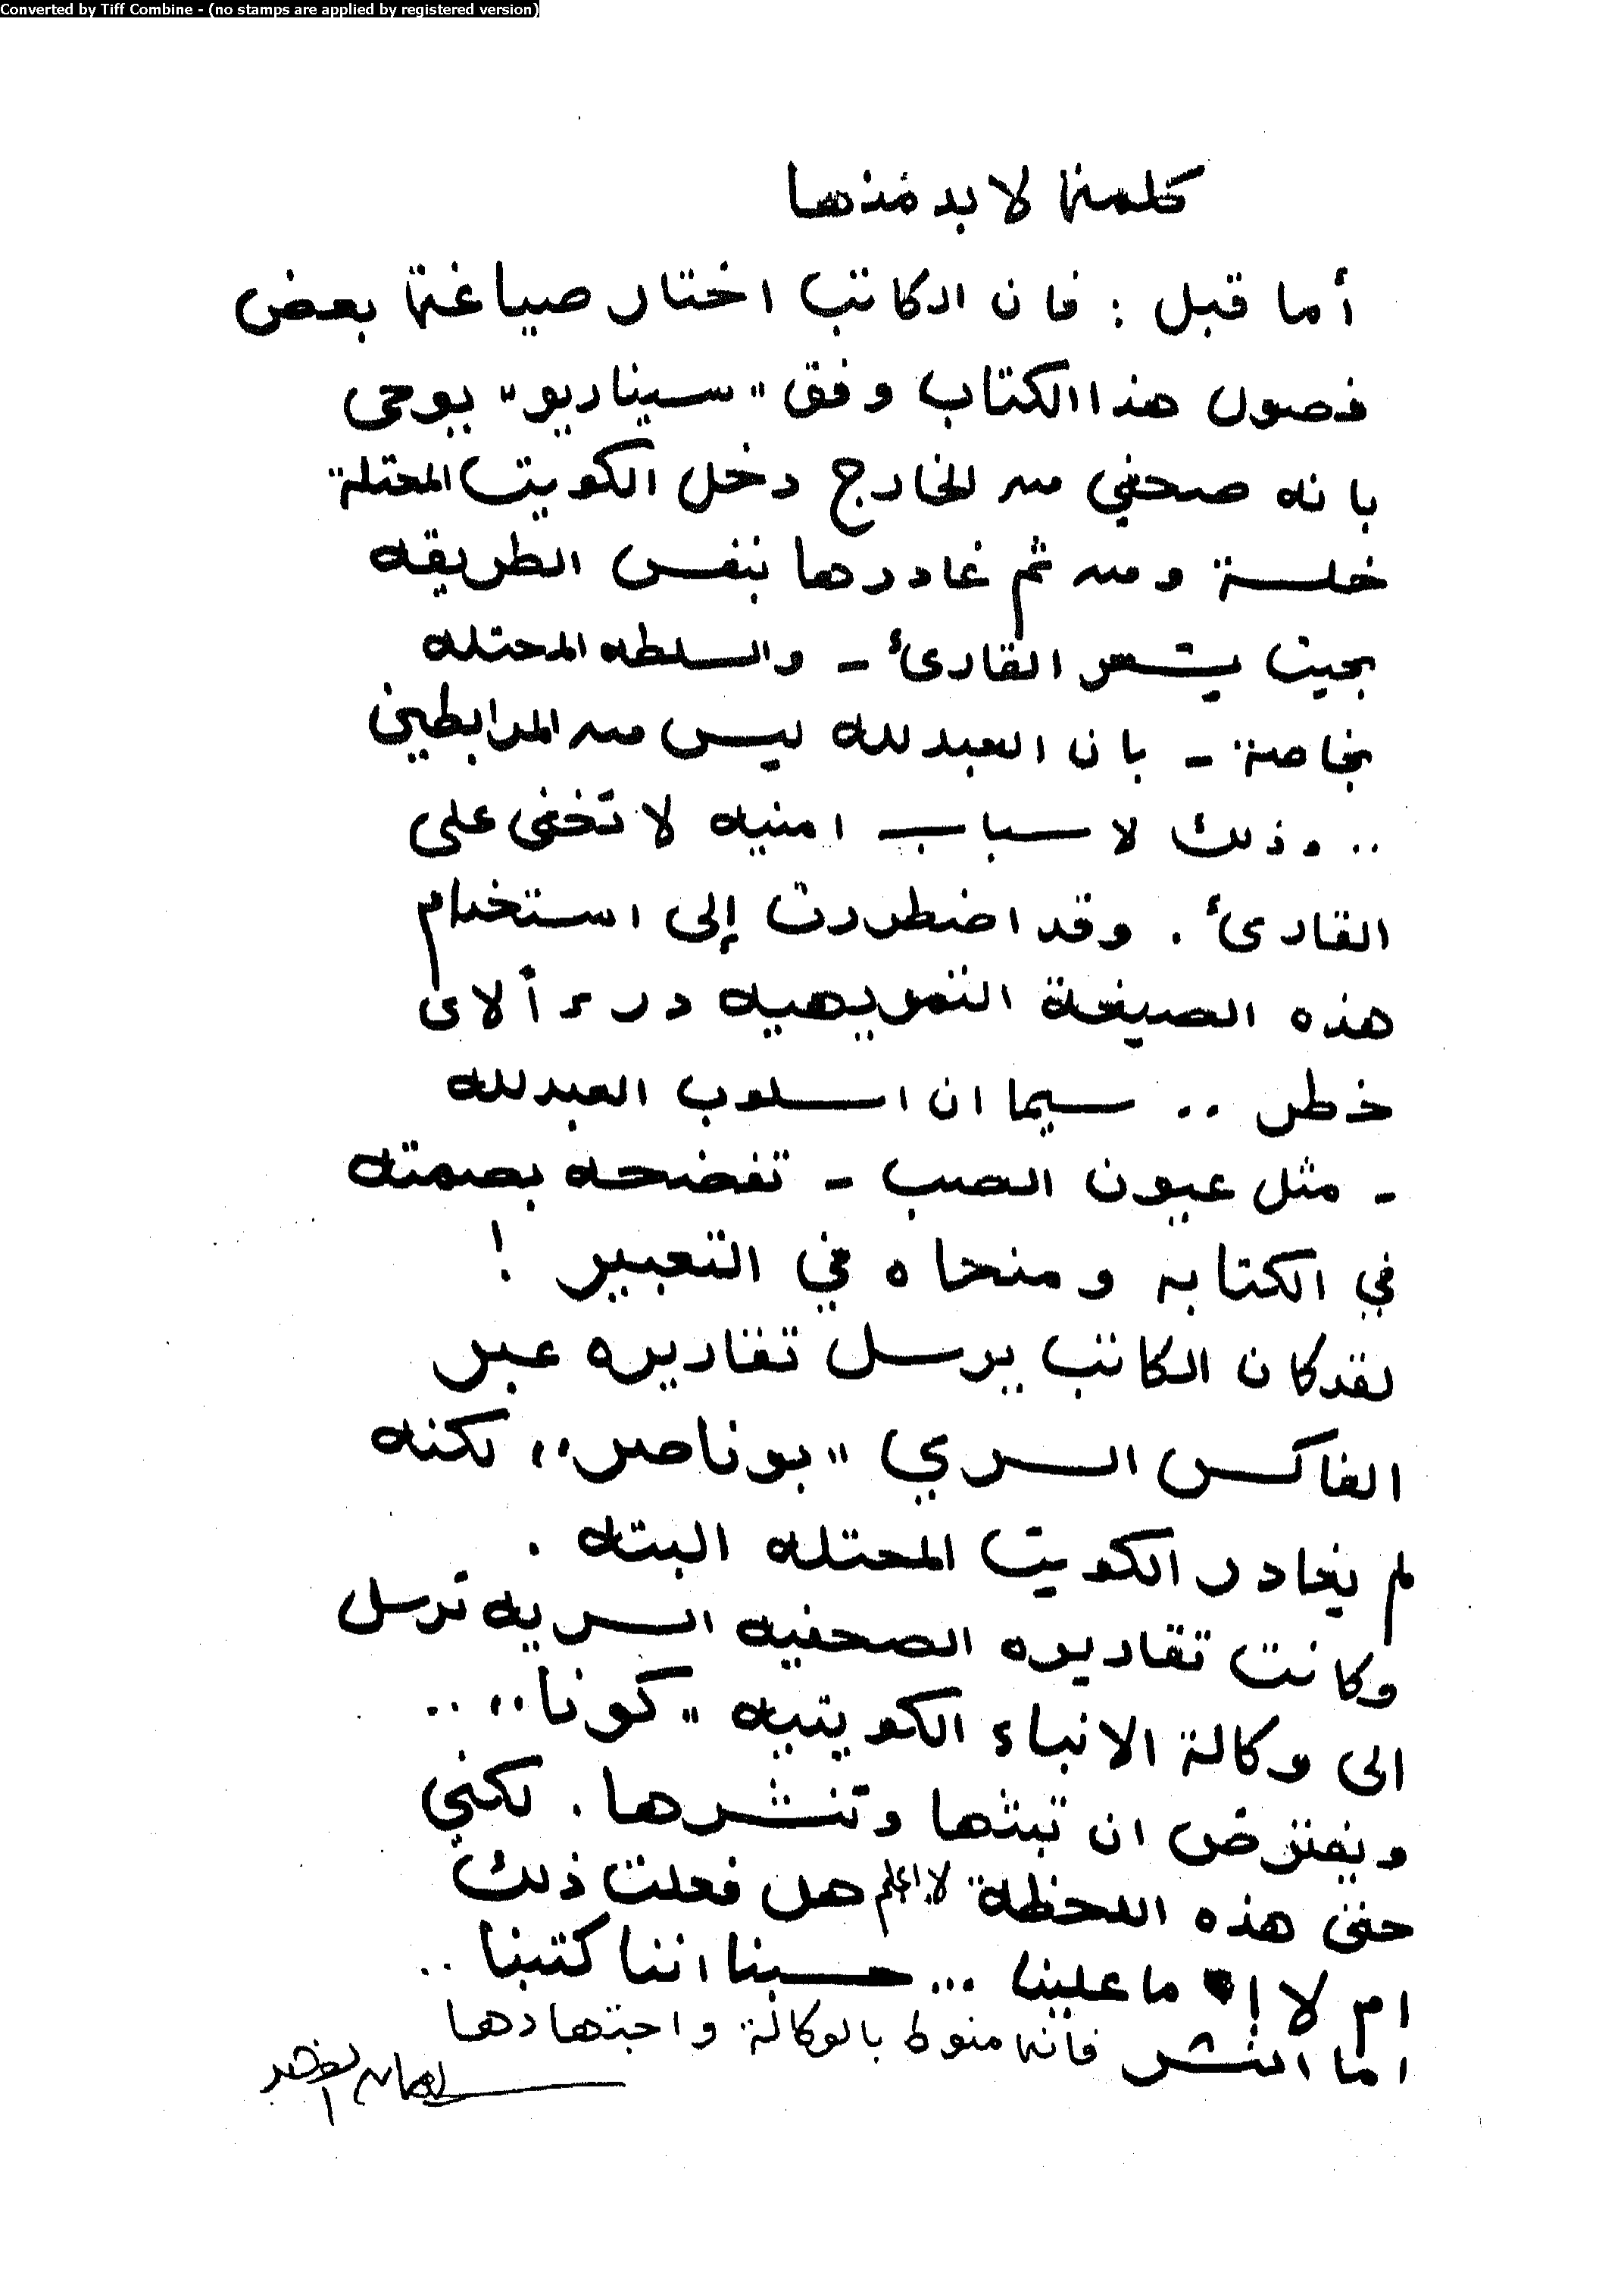 Converted by Tiff Combine - (no stamps are applied by registered version)
كلمة لا بد منها
أما قبل : فان الكاتب اختار صياغة بعض
فصول هذا الكتاب وفق "سيناريو" يوحى
بانه صحفي من الخارج دخل الكويت المحتلة
خلسة ومن ثم غادرها بنفس الطريقه
بحيث يشعر القارئ - والسلطه المحتله
بخاصة - بان العبدلله ليس من المرابطين
.. وذلك لاسباب امنيه لا تخفى على
القارئ . وقد اضطررت إلى استخدام
هذه الصيغة التمويهيه درءاً لاى
خطر .. سيما ان اسلوب العبدلله
- مثل عيون الصب - تفضحه بصمته
في الكتابه ومنحاه في التعبير !
لقد كان الكاتب يرسل تقاريره عبر
الفاكس السري "بوناصر" لكنه
لم يغادر الكويت المحتله البته .
وكانت تقاريره الصحفيه السريه ترسل
الى وكالة الانباء الكويتيه "كونا" ..
ويفترض ان تبثها وتنشرها . لكني
حتى هذه اللحظة لا اعلم هل فعلت ذلك
ام لا ! ما علينا ... حسبنا اننا كتبنا ..
اما النشر فانه منوط بالوكالة واجتهادها